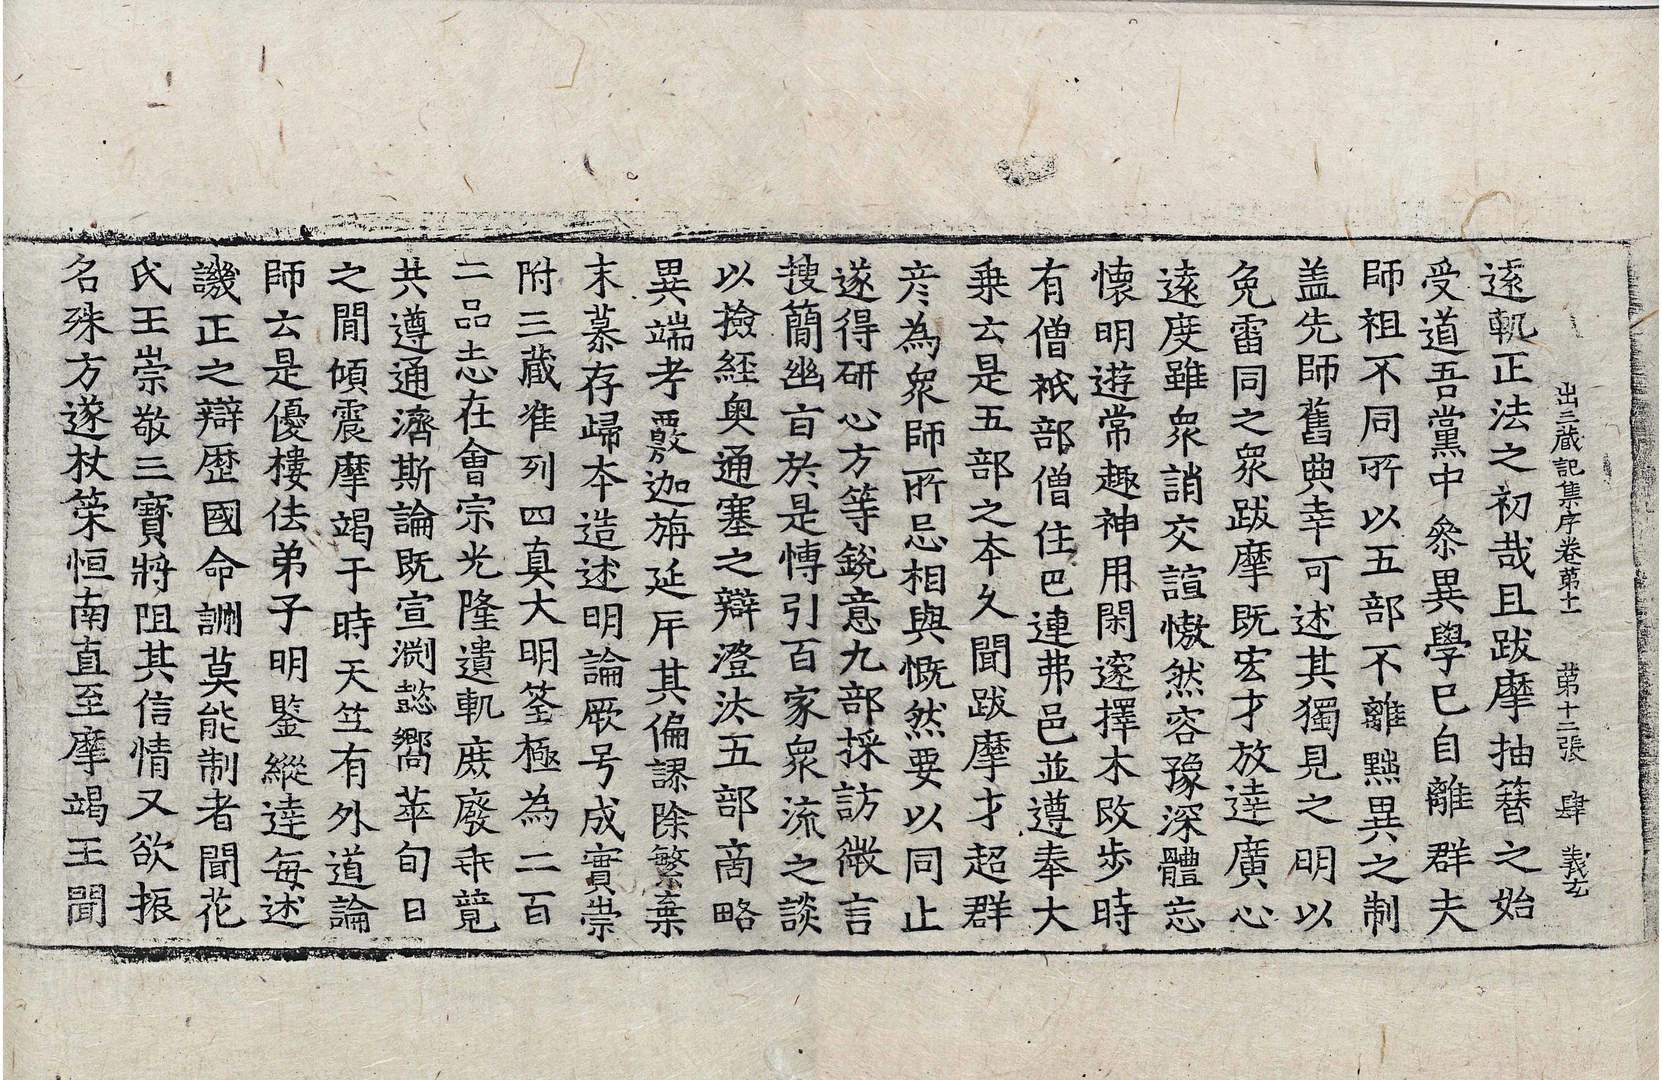 出三蔵記集序卷苐十一 苐十二張 肆 義玄
遠軌正法之初哉且跋摩抽簮之始
受道吾黨中叅異學已自離群夫
師祖不同所以五部不離黜異之制
盖先師舊典幸可述其獨見之明以
免雷同之衆跋摩既宏才放達廣心
遠度雖衆誚交諠慠然容豫深體忘
懷明遊常趣神用閑邃擇木改歩時
有僧祇部僧住巴連弗邑並遵奉大
乗云是五部之本久聞跋摩才超群
彦為衆師所忌相與慨然要以同止
遂得研心方等銳意九部採訪微言
搜簡幽旨於是愽引百家衆流之談
以撿経奥通塞之辯澄汰五部啇略
異端考覈迦旃延斥其偏謬除繁棄
末慕存歸本造述明論厥号成實崇
附三藏准列四真大明筌極為二百
二品志在會宗光隆遺軌庶廢乖競
共遵通濟斯論既宣渊懿嚮萃旬日
之間傾震摩竭于時天竺有外道論
師云是優樓佉弟子明鑒縱達每述
譏正之辯歴國命詶莫能制者聞花
氏王崇敬三寳將阻其信情又欲振
名殊方遂杖䇿恒南直至摩竭王聞